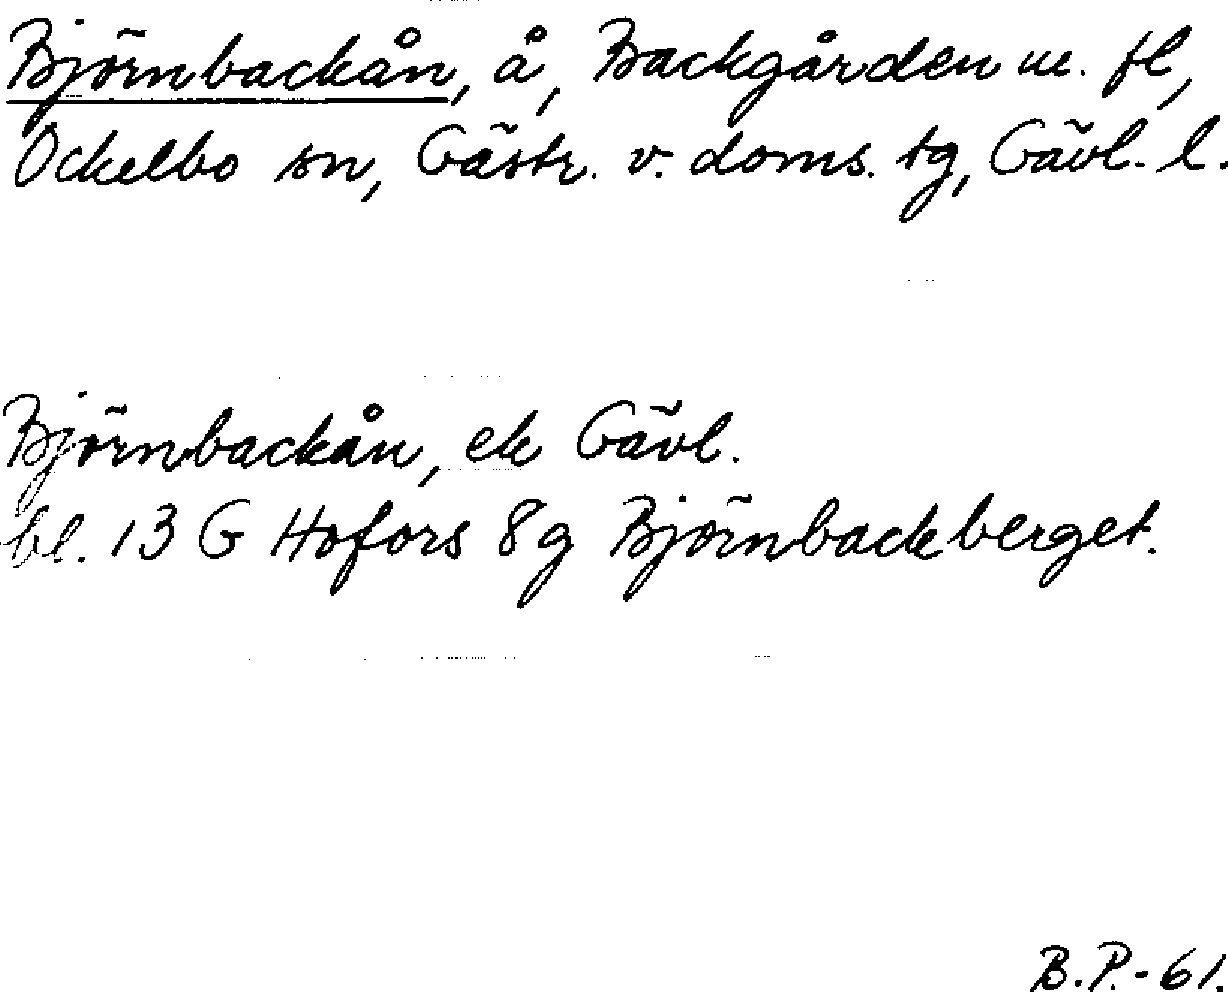 Björnbackån, å, Backgården m. fl,
Ockelbo sn, Gästr. v. doms. tg, Gävl. l.
Björnbackån, ek Gävl.
bl. 13 G Hofors 8g Björnbackberget.
B.P.-61.